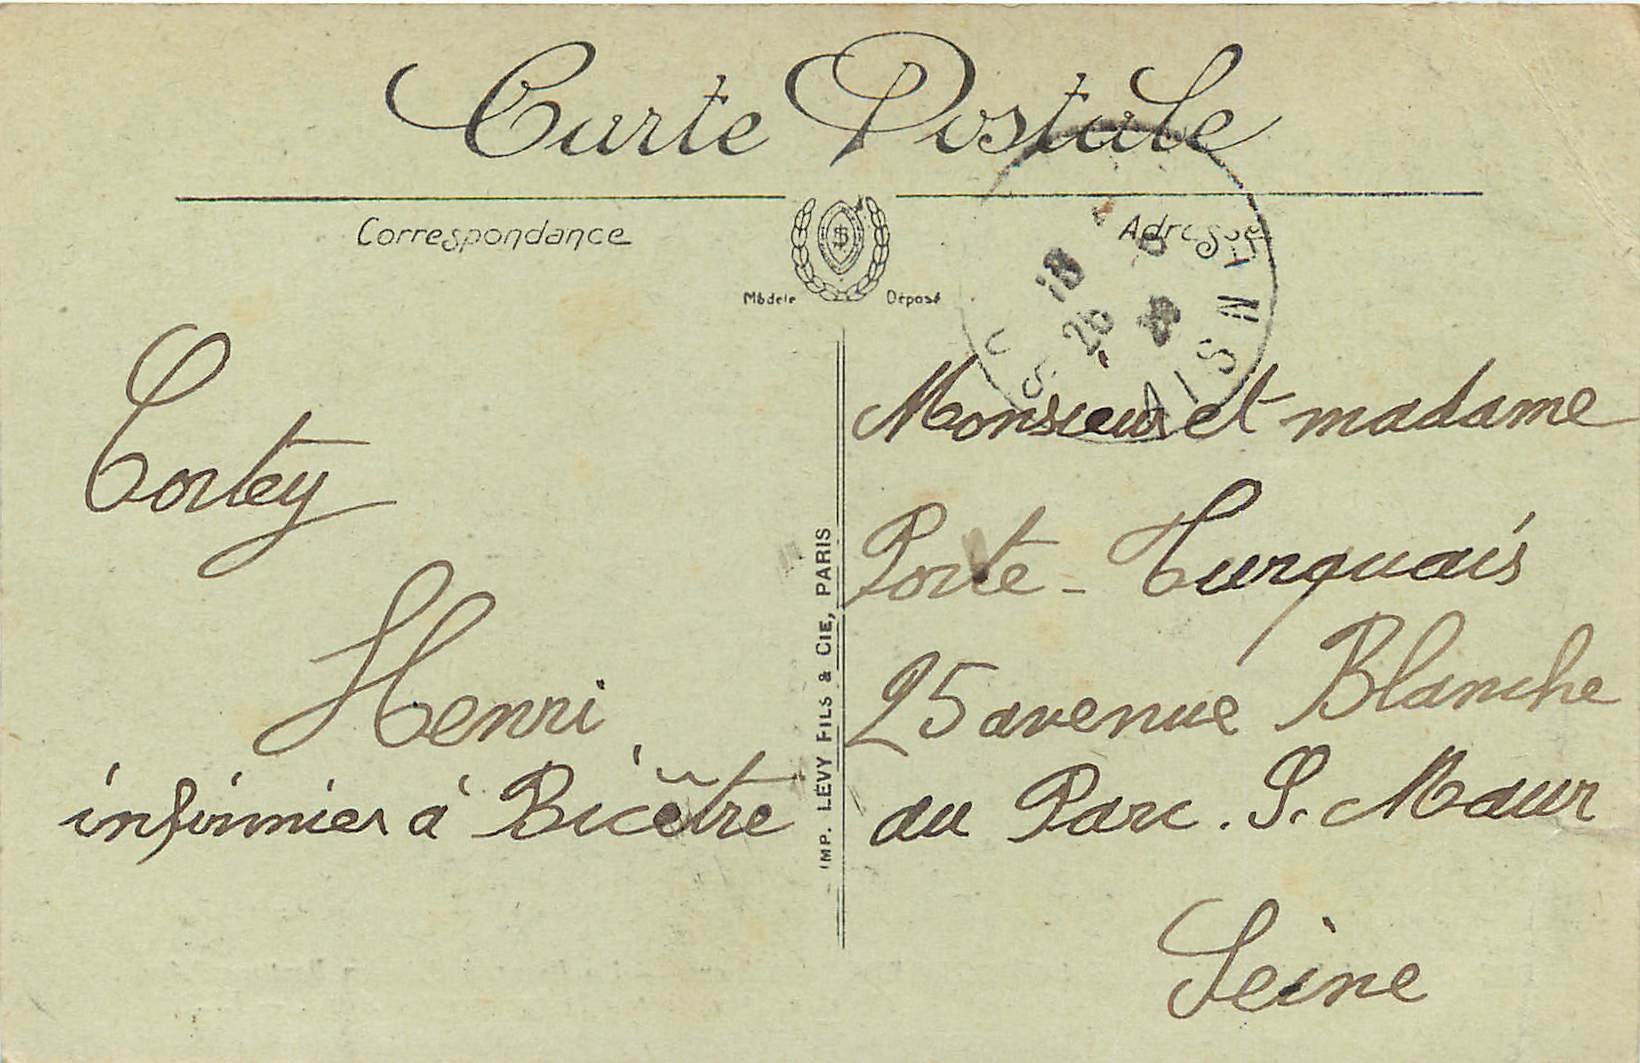 Carte Postale
Correspondance
Adresse
Modèle Déposé
AISNE
Tortey
Henri
infirmier à Bicêtre
IMP. LEVY FILS & CIE, PARIS
Monsieur et madame
Porte-Turquais
25 avenue Blanche
au Parc. S. Maur
Seine